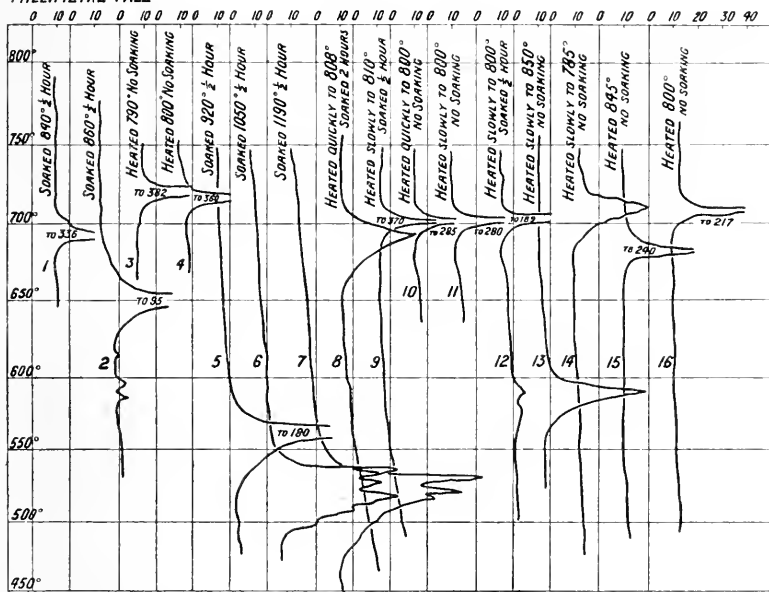 0 10 0 10 0 10 0 10 0 10 0 10 0 10 0 10 0 10 0 10 0 10 0 10 0 10 0 10 0 10 0 10 20 30 40
800°
750°
700°
650°
600°
550°
500°
450°
SOAKED 890° ½ HOUR
SOAKED 860° ½ HOUR
HEATED 790° NO SOAKING
HEATED 800° NO SOAKING
SOAKED 920° ½ HOUR
SOAKED 1050° ½ HOUR
SOAKED 1190° ½ HOUR
HEATED QUICKLY TO 808°
SOAKED 2 HOURS
HEATED SLOWLY TO 810°
SOAKED ½ HOUR
HEATED QUICKLY TO 800°
NO SOAKING
HEATED SLOWLY TO 800°
NO SOAKING
HEATED SLOWLY TO 800°
SOAKED ½ HOUR
HEATED SLOWLY TO 850°
NO SOAKING
HEATED SLOWLY TO 785°
NO SOAKING
HEATED 845°
NO SOAKING
HEATED 800°
NO SOAKING
TO 336
TO 382
TO 370
TO 285
TO 280
TO 217
TO 240
TO 95
TO 190
1
3
4
10
11
2
5
6
7
8
9
12
13
14
15
16